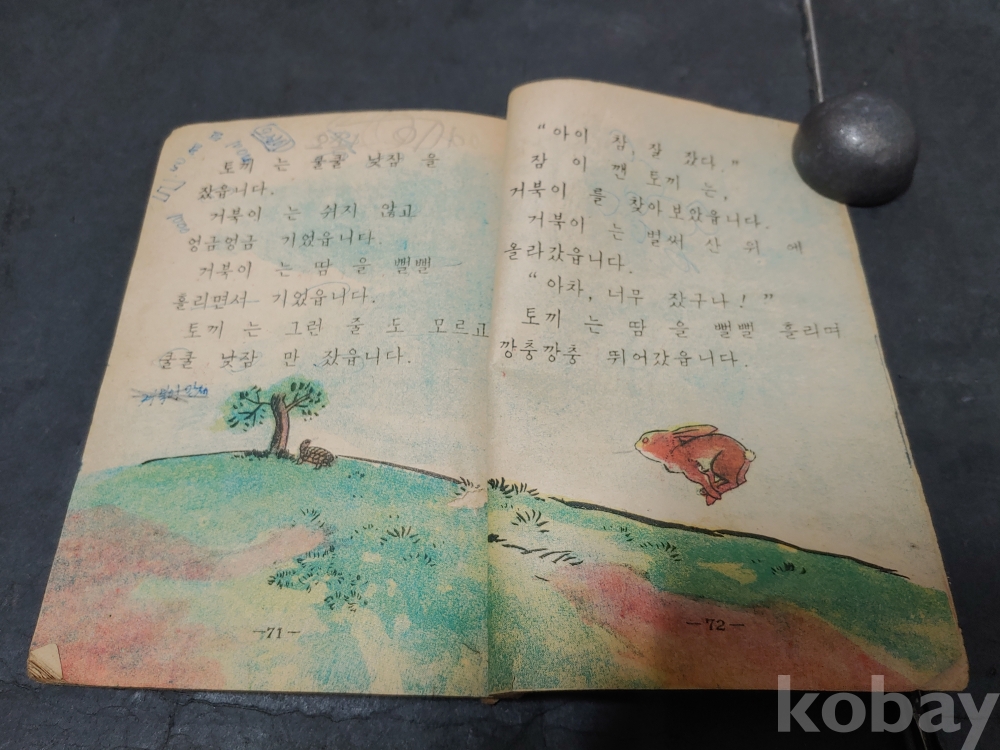 토끼 는 쿨쿨 낮잠 을
잤읍니다.
거북이 는 쉬지 않고
엉금엉금 기었읍니다.
거북이 는 땀 을 뻘뻘
흘리면서 기었읍니다.
토끼 는 그런 줄 도 모르고
쿨쿨 낮잠 만 잤읍니다.
—71—
“아이 참, 잘 잤다.”
잠 이 깬 토끼 는,
거북이 를 찾아 보았읍니다.
거북이 는 벌써 산 위 에
올라갔읍니다.
“아차, 너무 잤구나!”
토끼 는 땀 을 뻘뻘 흘리며
깡충깡충 뛰어갔읍니다.
—72—
kobay